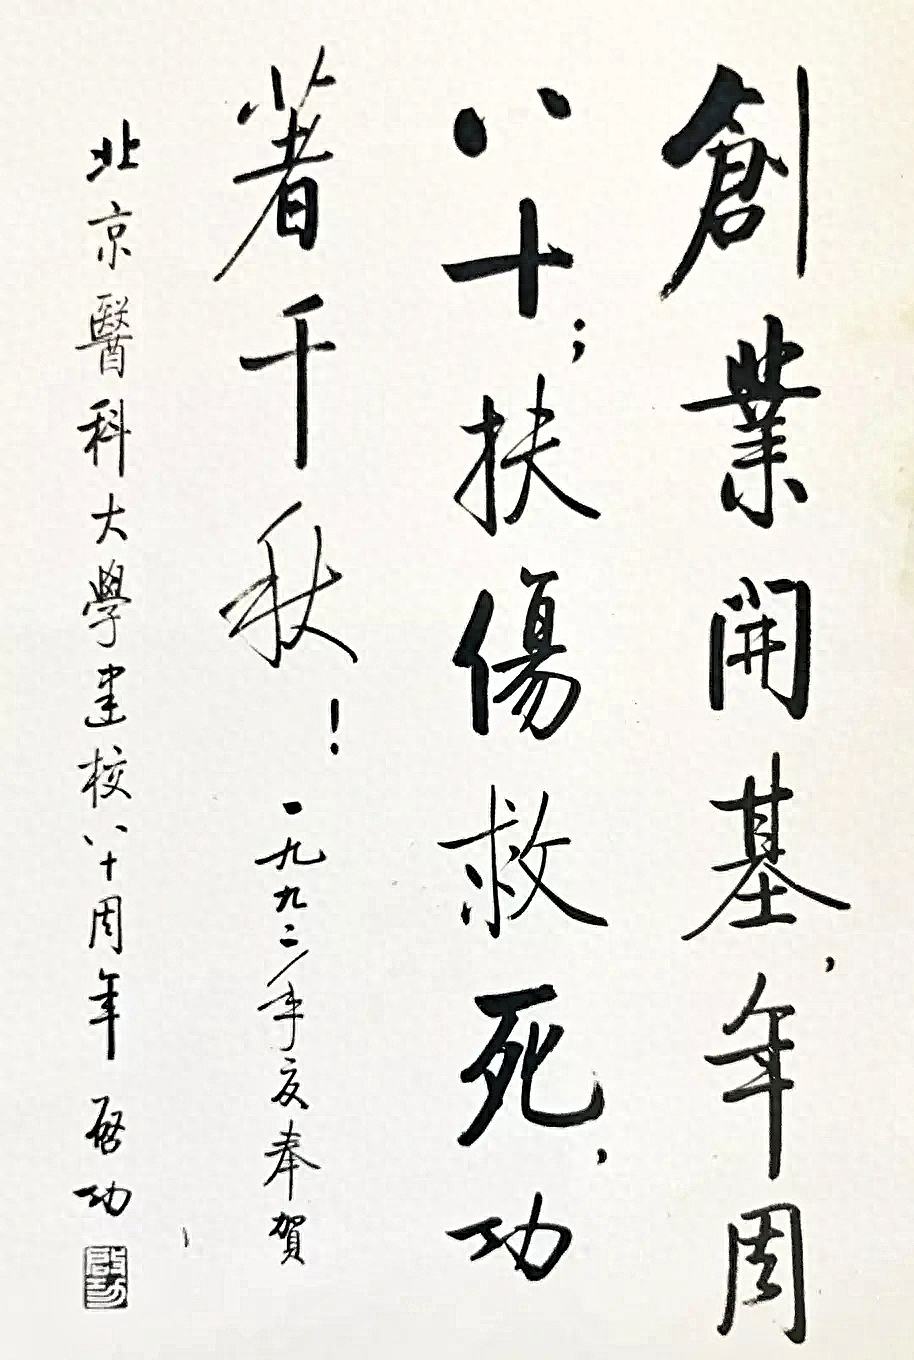 創業開基，年周
八十；扶傷救死，功
著千秋！一九九二年夏奉賀
北京醫科大學建校八十周年 啓功
啓功